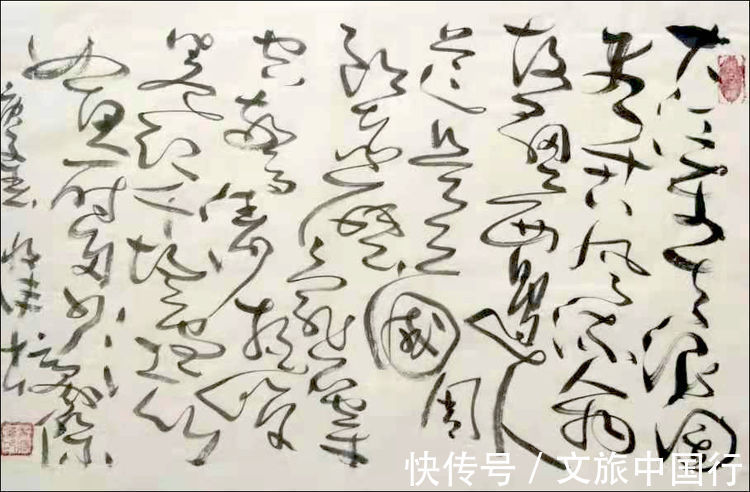 大江东去浪淘
尽千古风流人物
故垒西边人
道是三国周
郎赤壁乱石穿
空惊涛拍岸
卷起千堆雪江山
如画一时多少豪杰
快传号 / 文旅中国行